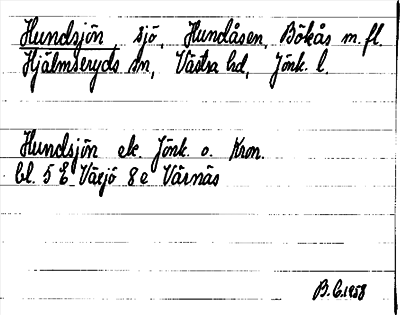 Hundsjön, sjö, Hundåsen, Bökås m.fl.
Hjälmseryds sn, Västra hd, Jönk. l.
Hundsjön ek. Jönk. o. Kron.
bl. 5 E Växjö 8 e Värnäs
B. C. 1958